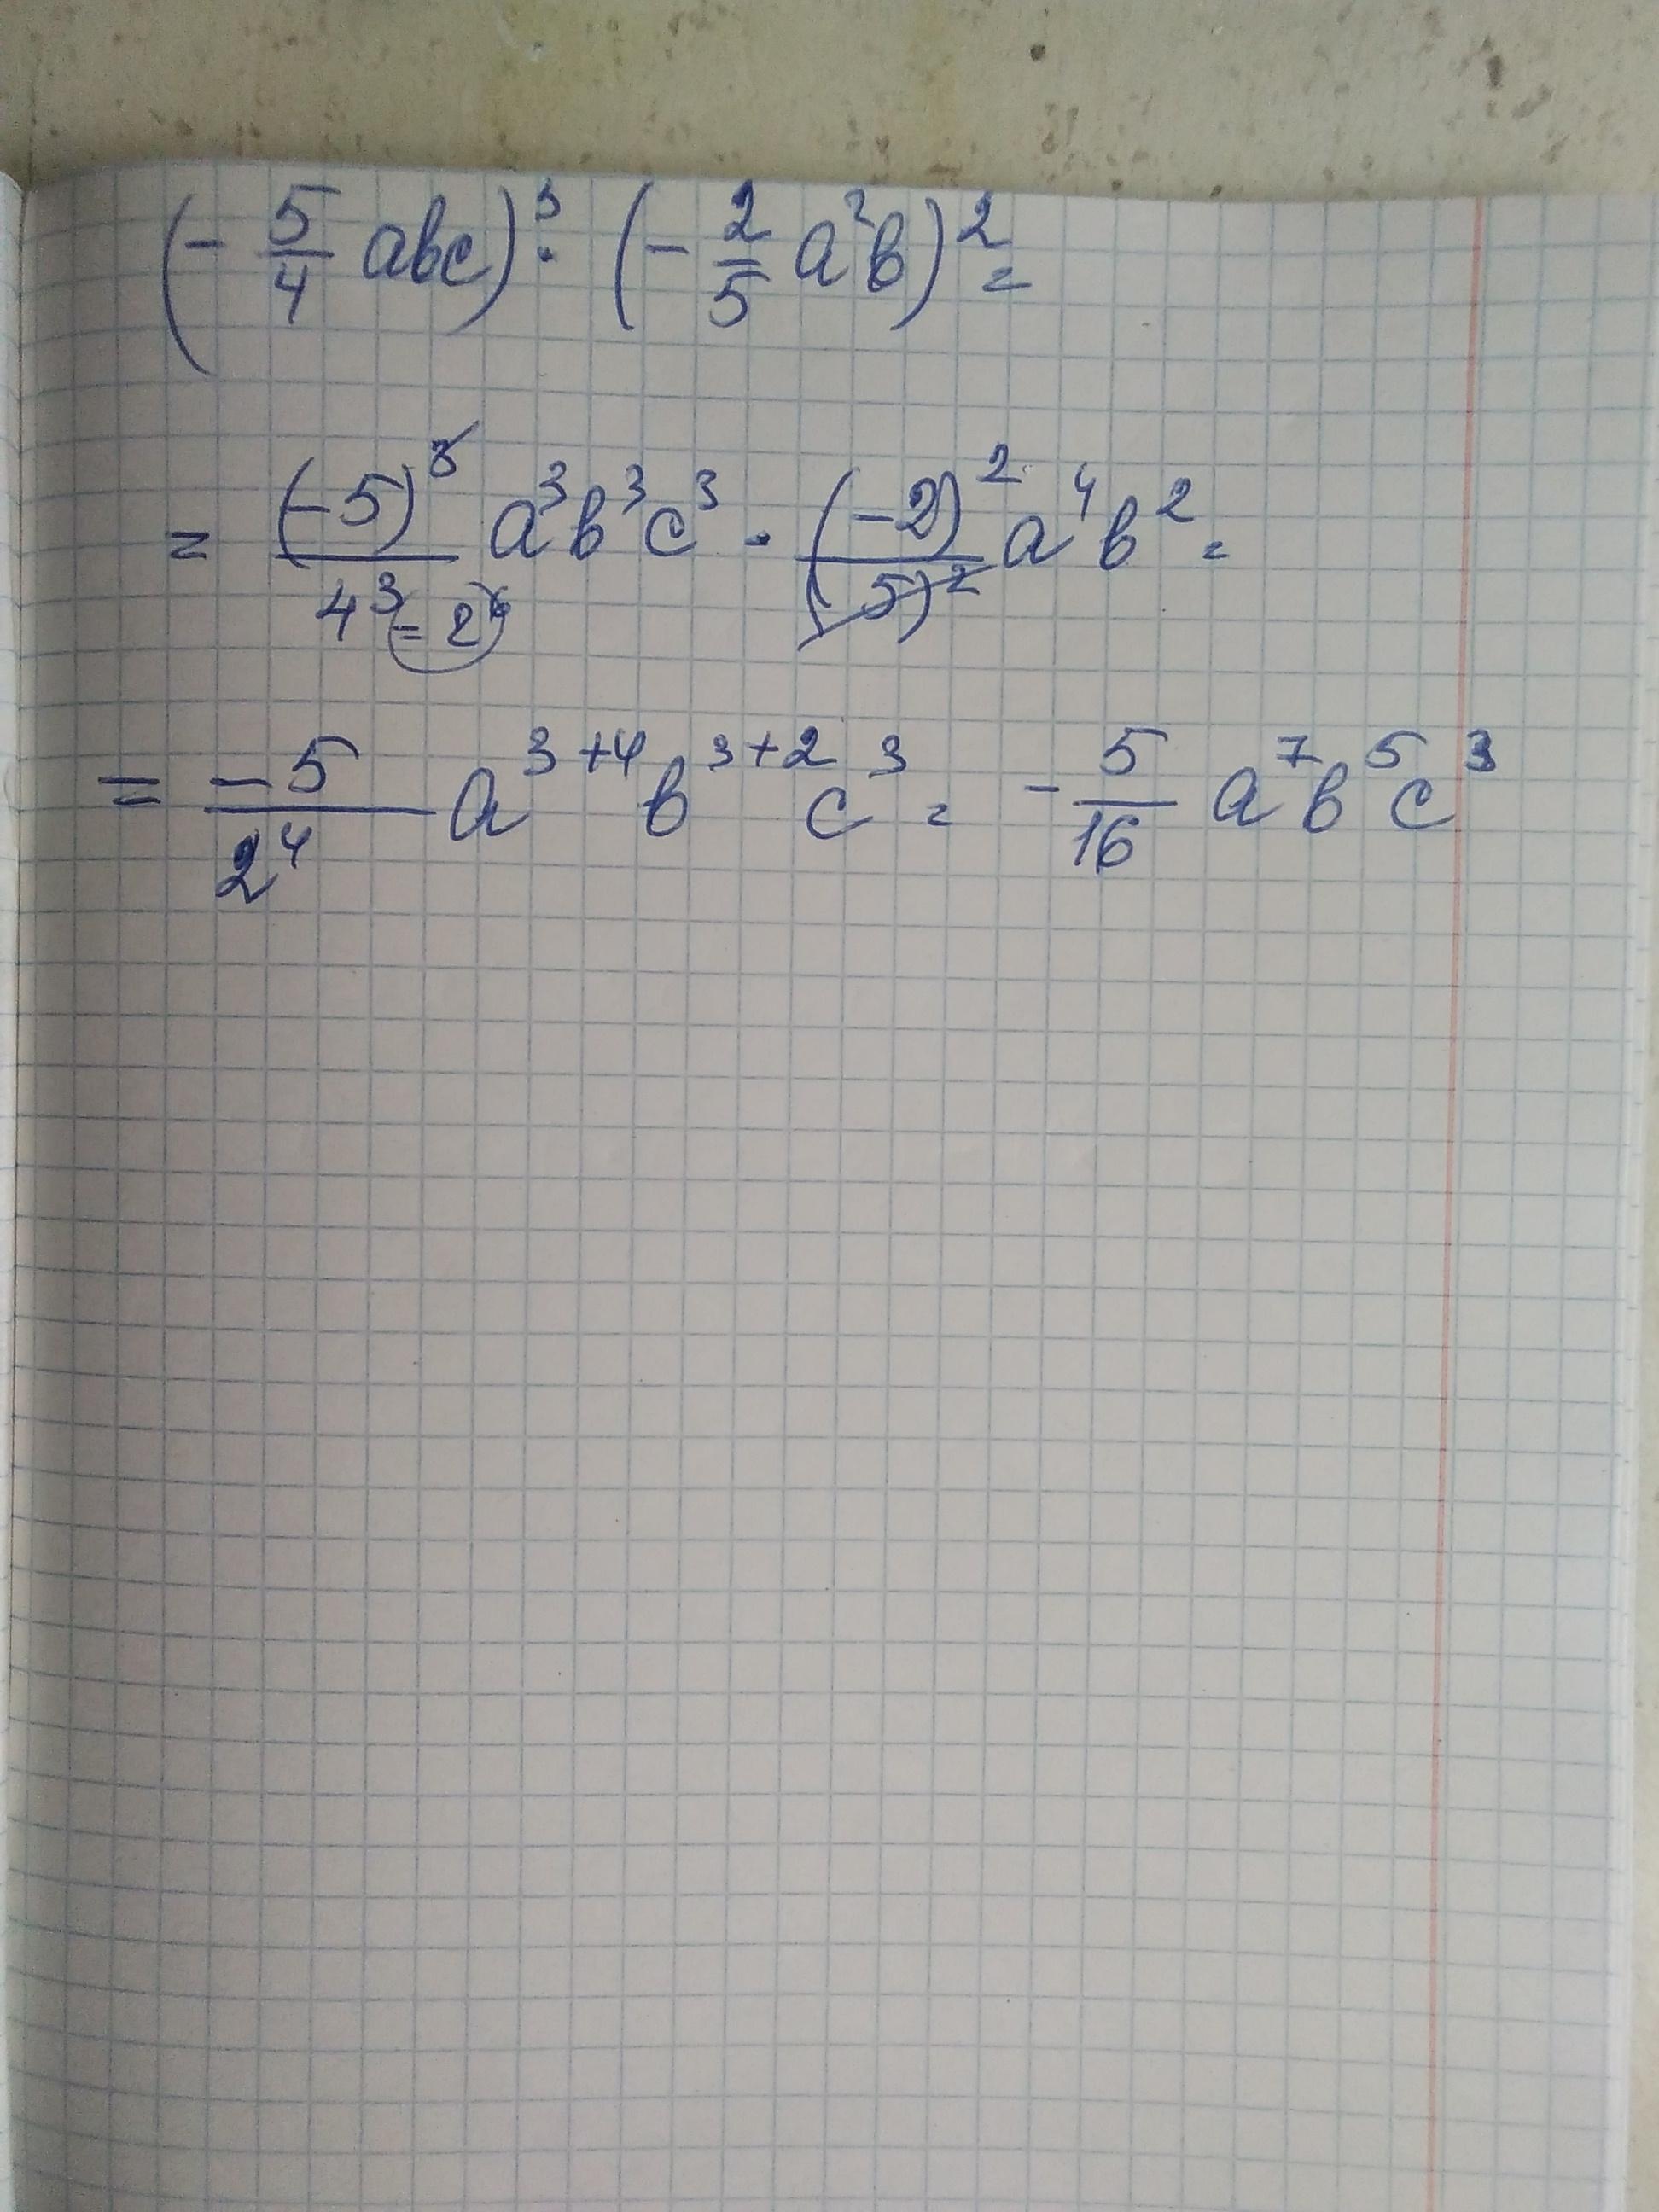 (- 5/4 abc)³ · (- 2/5 a²b)² =
= (-5)³/4³=2⁶ a³b³c³ · (-2)²/(5)² a⁴b² =
= -5/2⁴ a³⁺⁴b³⁺²c³ = - 5/16 a⁷b⁵c³